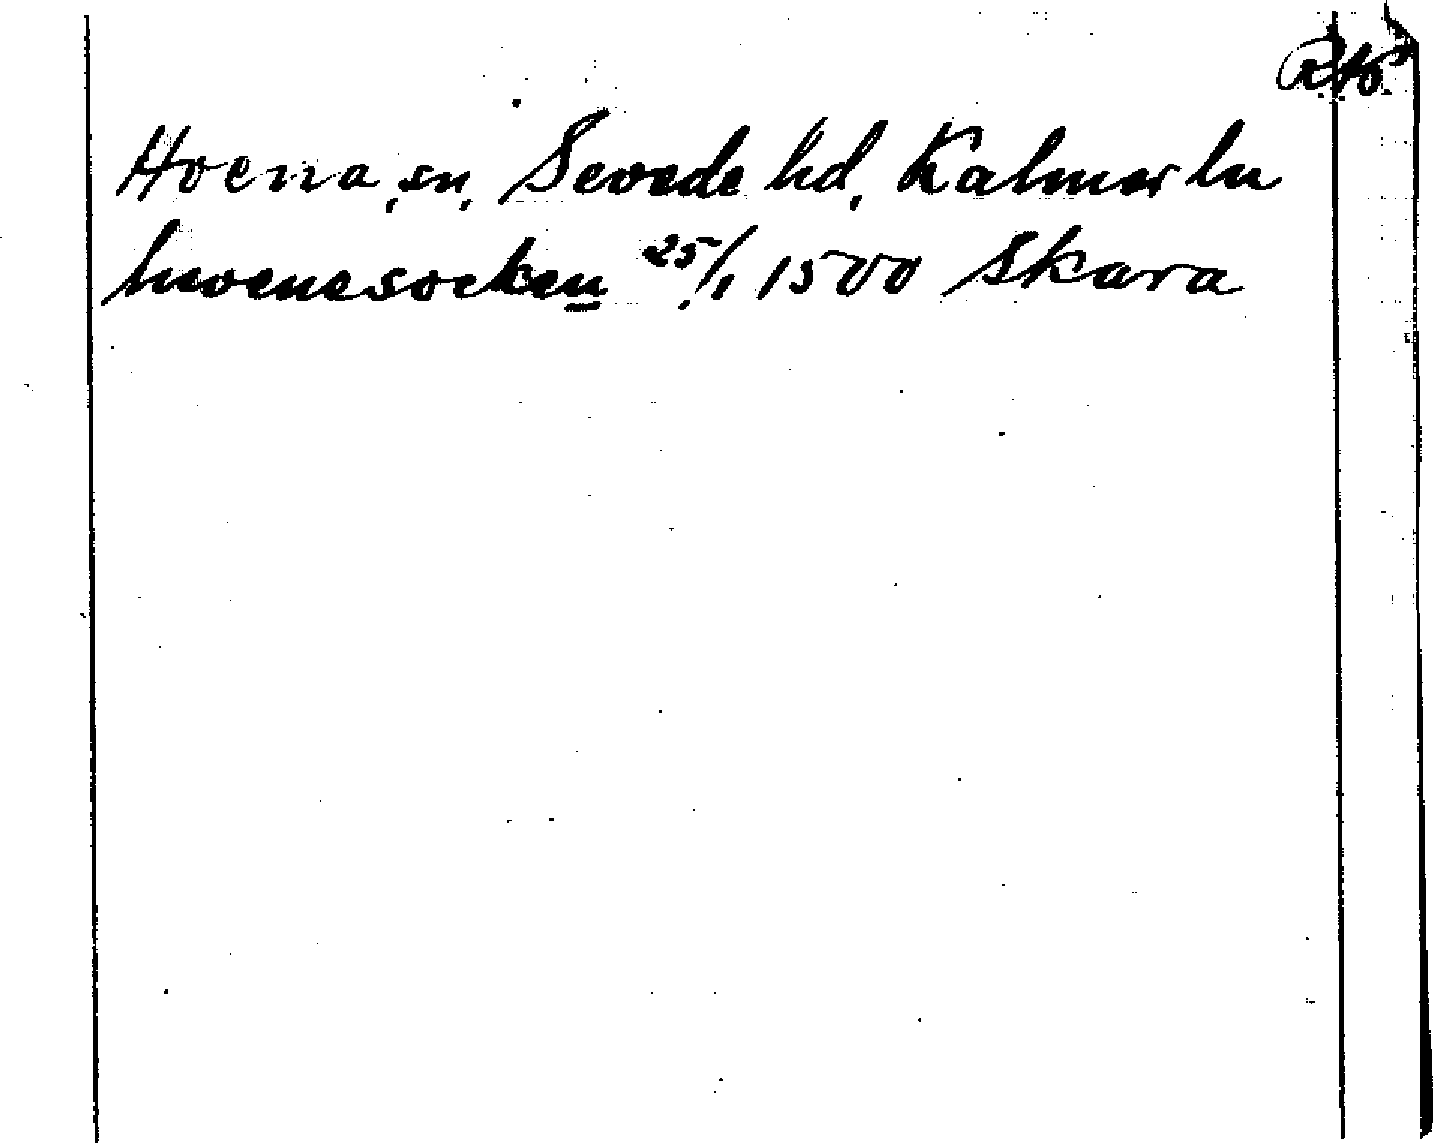 Hvena, sn, Sevede hd, Kalmar ln
hwenesocken 25/1 1500 Skara